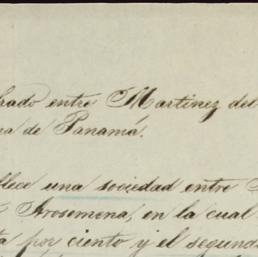 brado entre Martinez del
na de Panamá.
blece una sociedad entre
Arosemena, en la cual
ta por ciento y el segund